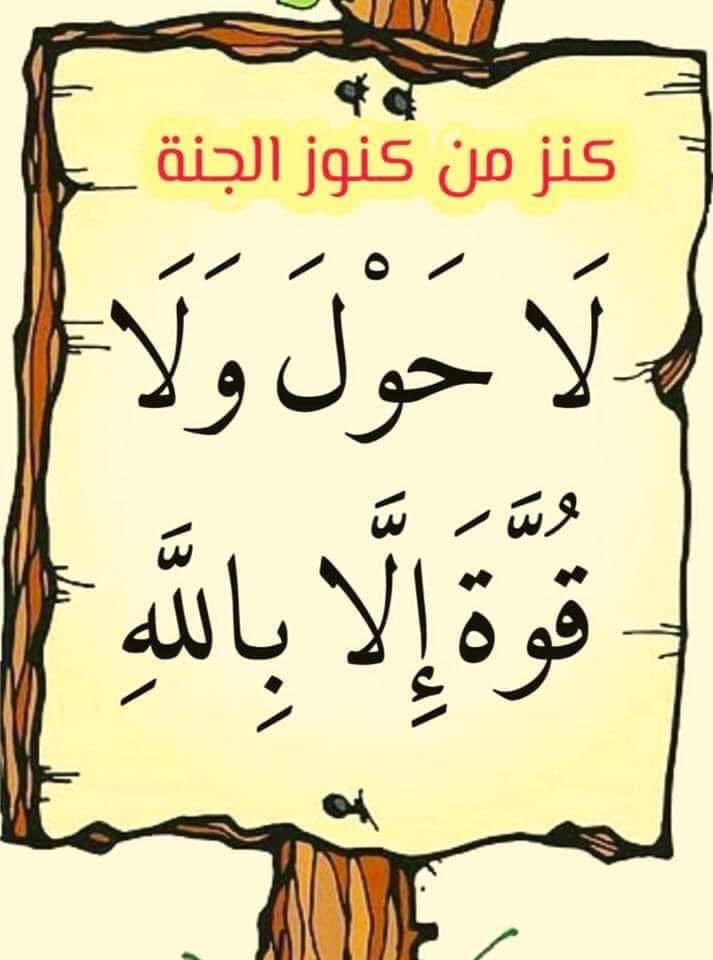 كنز من كنوز الجنة
لَا حَوْلَ وَلَا
قُوَّةَ إِلَّا بِاللَّهِ